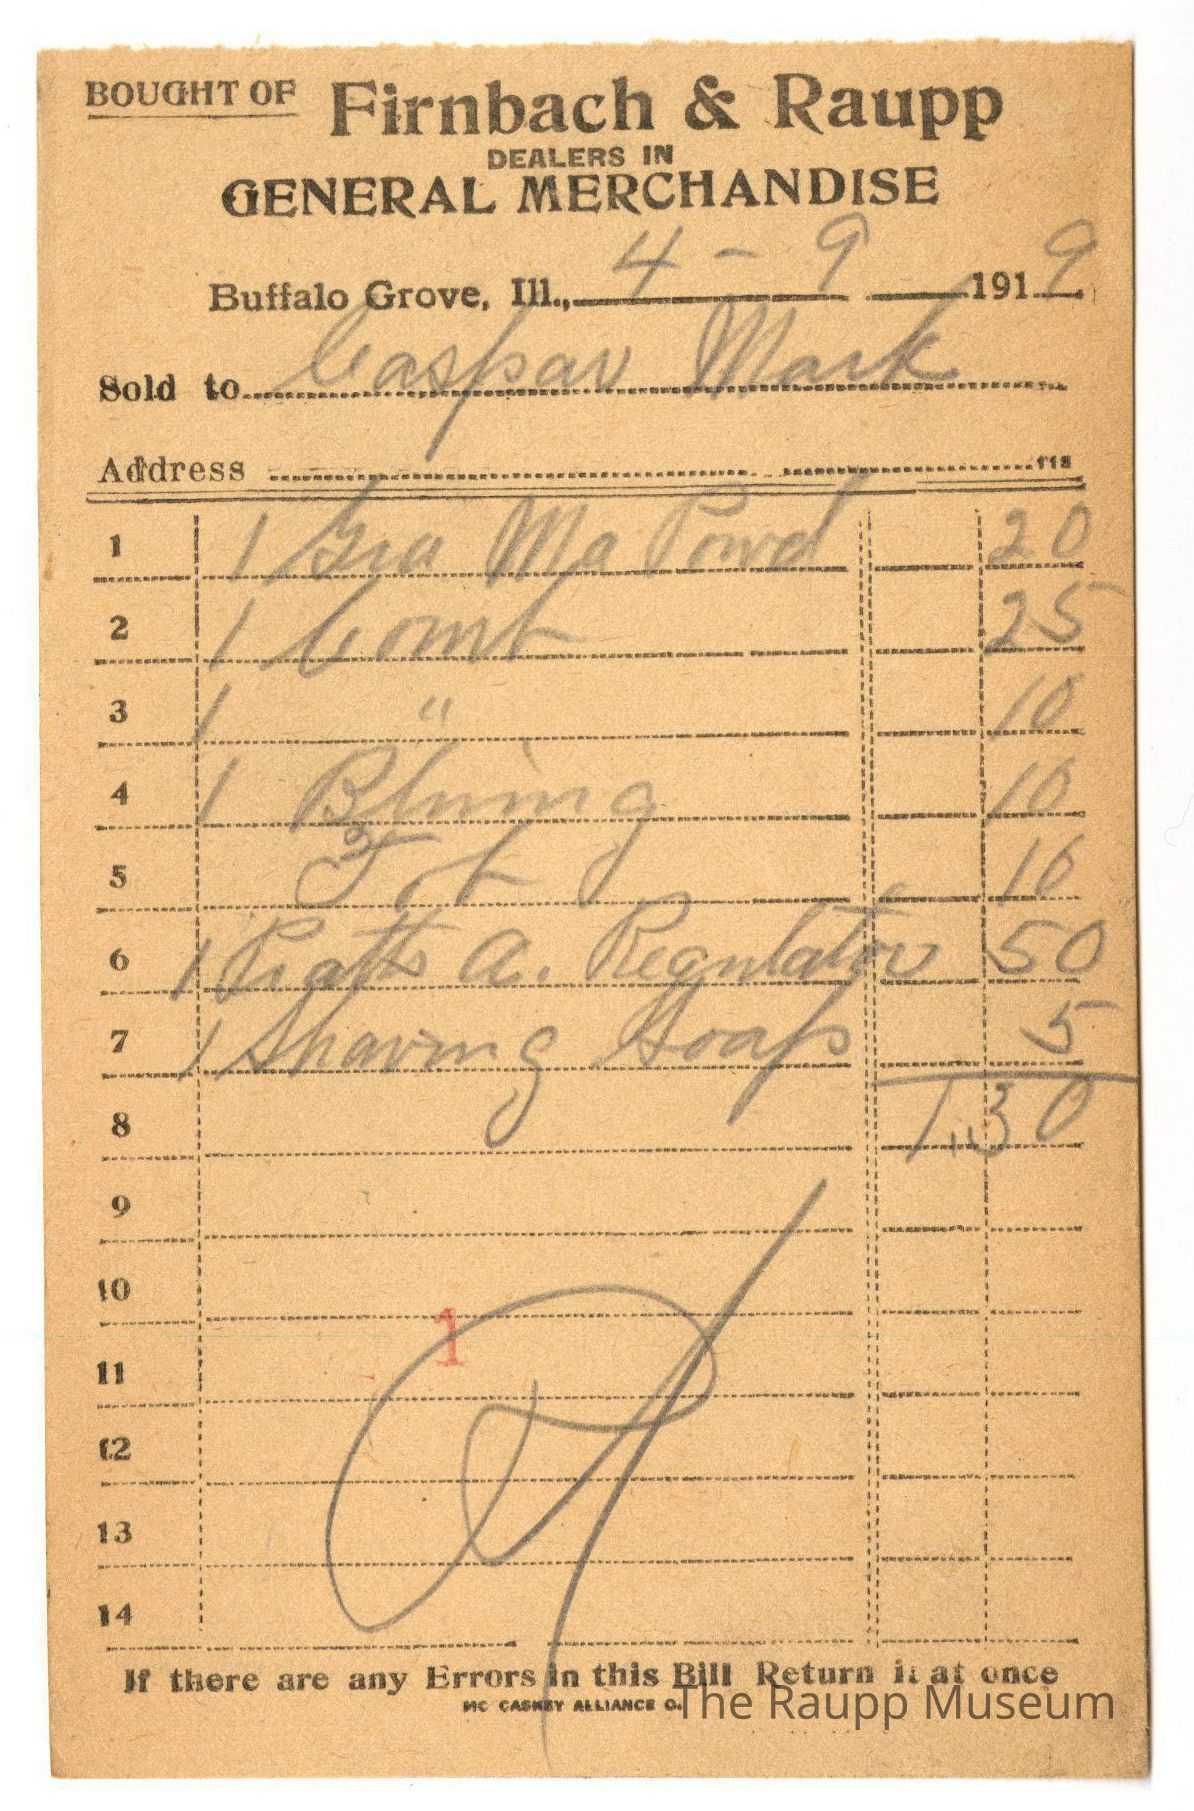 BOUGHT OF Firnbach & Raupp
DEALERS IN
GENERAL MERCHANDISE
Buffalo Grove, Ill., 4 - 9 1919
Sold to Caspar Mark
Address
1 1 Gra Ma Powd 20
2 1 Comb 25
3 1 " 10
4 1 Bluing 10
5 10
6 1 Pratts a. Regulator 50
7 1 Shaving Soap 5
8 1.30
9
10
1
11
12
13
14
If there are any Errors in this Bill Return it at once
MC CASKEY ALLIANCE O.
The Raupp Museum